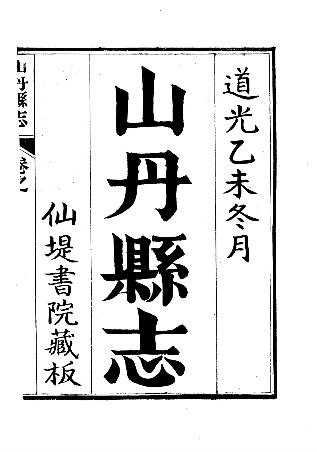 道光乙未冬月
山丹縣志
仙堤書院藏板
山丹縣志
卷之